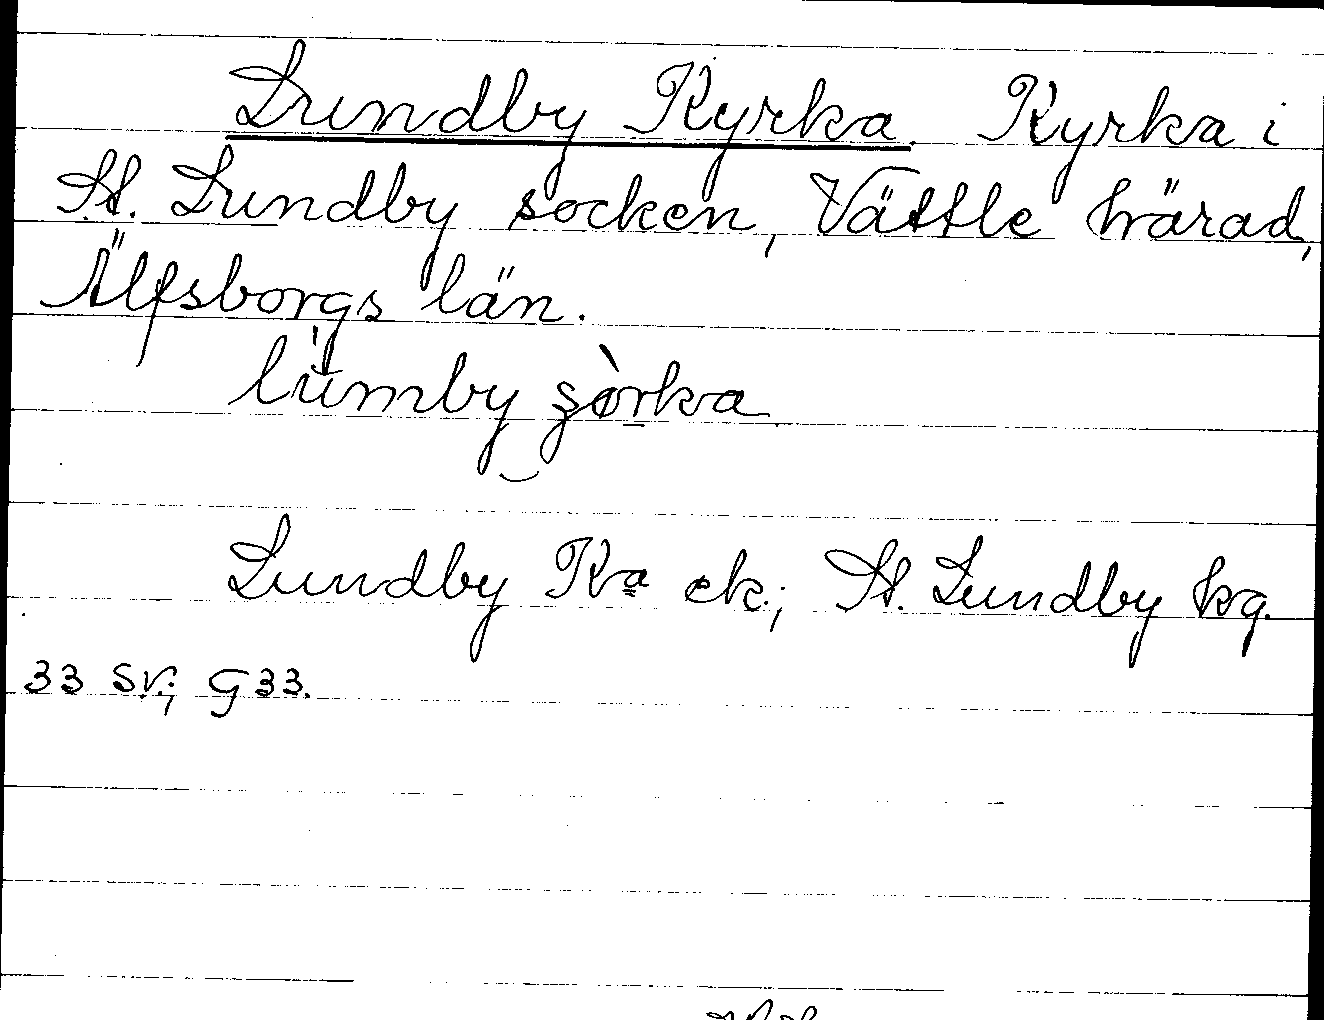 Lundby Kyrka. Kyrka i
St. Lundby socken, Vättle härad,
Älfsborgs län.
Lundby Ka ek.; St. Lundby kg.
33 SV; G33.